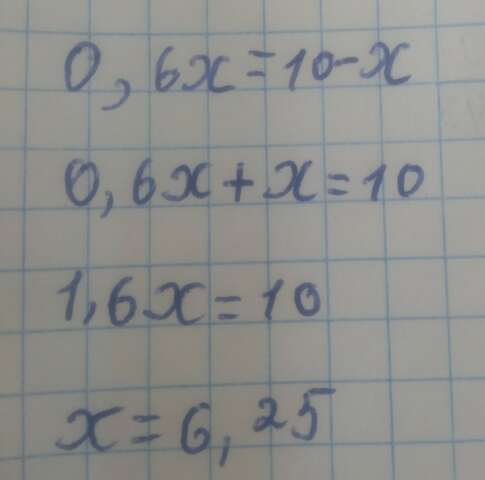 0,6x=10-x
0,6x+x=10
1,6x=10
x=6,25